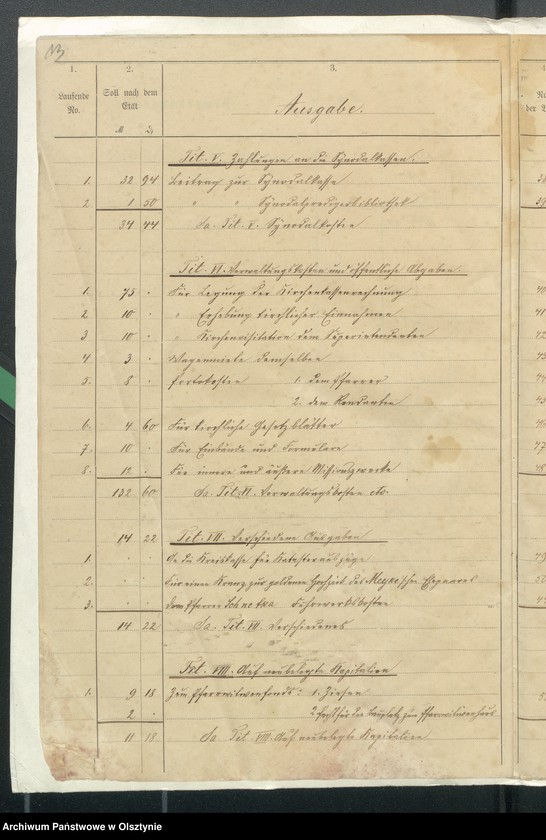 1. 2. 3.
Laufende No. Soll nach dem Etat Ausgabe.
M
Tit. V. Zahlungen an die Synodalkassen.
1. 32 94 Beitrag zur Synodalkasse
2. 1 50 " " Synodalpredigerbibliothek
34 44 Sa. Tit. V. Synodalkosten
Tit. VI. Verwaltungskosten und öffentliche Abgaben.
1. 75 . Für Legung der Kirchenkassenrechnung
2. 10 . " Erhebung kirchlicher Einnahmen
3 10 . " Kirchenvisitation dem Superintendenten
4. 3 . Wagenmiete demselben
5. 8 . Portokosten 1. dem Pfarrer
2. dem Rendanten
6. 4 60 Für kirchliche Gesetzblätter
7. 10 . Für Einbände und Formulare
8. 12 . Für innere und äußere Missionszwecke
132 60 Sa. Tit. VI. Verwaltungskosten etc.
14 22 Tit. VII. Verschiedene Ausgaben
1. . . An die Kreiskasse für Katasterauszüge
2. . . Für einen Kranz zur goldenen Hochzeit des Ehepaares
3. . . Dem Pfarrer Fuhrwerkskosten
14 22 Sa. Tit. VII. Verschiedenes
Tit. VIII. Auf neubelegte Kapitalien
1. 9 18 Zum Pfarrwitwenfonds: 1. Zinsen
2 . 2. für den Bauplatz zum Pfarrwitwenhaus
11 18 Sa Tit. VIII. Auf neubelegte Kapitalien
Archiwum Państwowe w Olsztynie